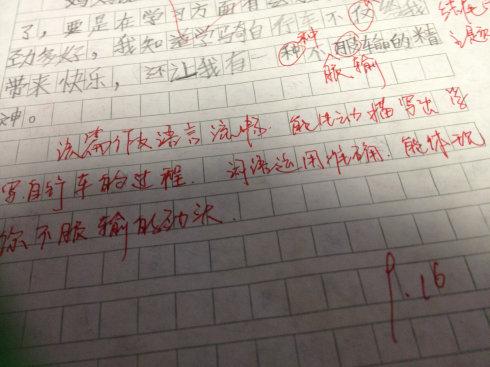 了，要是在学习方面有
劲多好，我知道学骑自行车不仅给我 结尾
带来快乐，还让我有一种不服输的精 题
种
服输
神。
这篇作文语言流畅，能生动描写出学
写自行车的过程，词语运用准确，能体现
你不服输的劲头
9.16